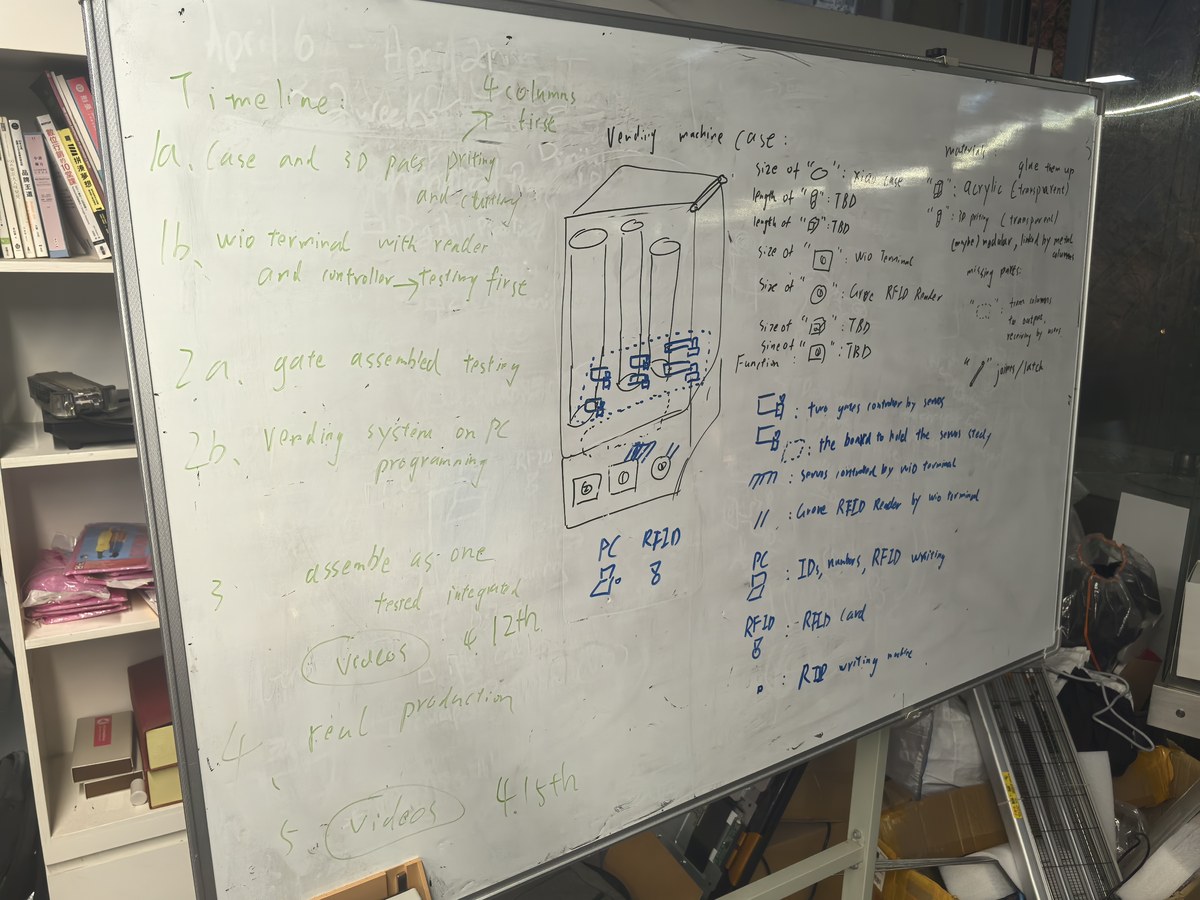 April 6 - April 21
Timeline:
4 columns
first
1a. Case and 3D pats priting
and cutting
1b、 wio terminal with reader
and controller → testing first
2a、 gate assembled testing
2b、 Vending system on PC
programming
3、 assemble as one
tested integrated
videos 4.12th
4、 real production
5 videos 4.15th
Vending machine case:
PC RFID
size of " " : xiao case
length of " " : TBD
length of " " : TBD
size of " " : Wio Terminal
size of " " : Grove RFID Reader
size of " " : TBD
size of " " : TBD
Function:
: two gates controller by servos
: the board to hold the servos stedy
: servos controlled by wio terminal
: Grove RFID Reader by wio terminal
PC : IDs, numbers, RFID writing
RFID : RFID card
: RFID writing machine
materials:
glue them up
" " : acrylic (transparent)
" " : 3D priting (transparent)
(maybe) modular, linked by metal
columns
missing parts:
" " : from columns
to output,
receiving by users
" " joins/latch